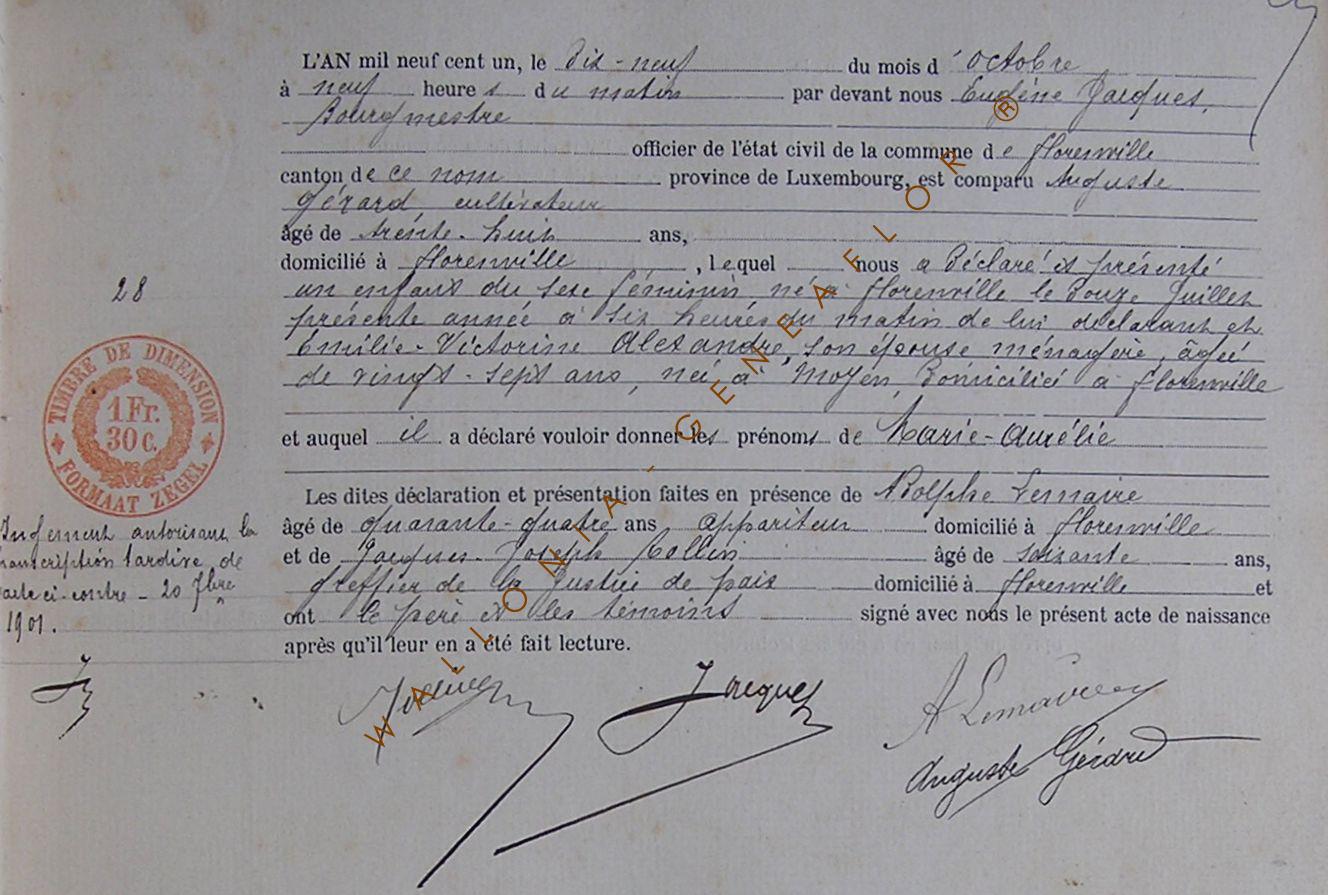 L'AN mil neuf cent un, le Dix-neuf du mois d'octobre
à neuf heures du matin par devant nous Eugène Jacques,
Bourgmestre
officier de l'état civil de la commune de florenville
canton de ce nom province de Luxembourg, est comparu Auguste
Gérard cultivateur
âgé de trente-huit ans,
domicilié à florenville, lequel nous a Déclaré et présenté
un enfant du sexe féminin, né à florenville le Douze Juillet
présente année à six heures du matin de lui déclarant et
Emilie-Victorine Alexandre, son épouse ménagère, âgée
de vingt-sept ans, née à Moyen, Domiciliée à florenville
et auquel il a déclaré vouloir donner les prénoms de Marie-Aurélie
Les dites déclaration et présentation faites en présence de Adolphe Lemaire
âgé de quarante-quatre ans appariteur domicilié à florenville
et de Jacques-Joseph Collin âgé de soixante ans,
greffier de la Justice de paix domicilié à florenville et
ont le père et les témoins signé avec nous le présent acte de naissance
après qu'il leur en a été fait lecture.
28
TIMBRE DE DIMENSION
1 Fr.
30 c.
FORMAAT ZEGEL
Jugement autorisant la
transcription tardive de
l'acte ci-contre - 20 7bre
1901.
Jacques
A Lemaire
Auguste Gérard
WALLONIA-GENEAFLOR ®